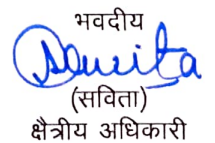 भवदीय
Savita
(सविता)
क्षैत्रीय अधिकारी